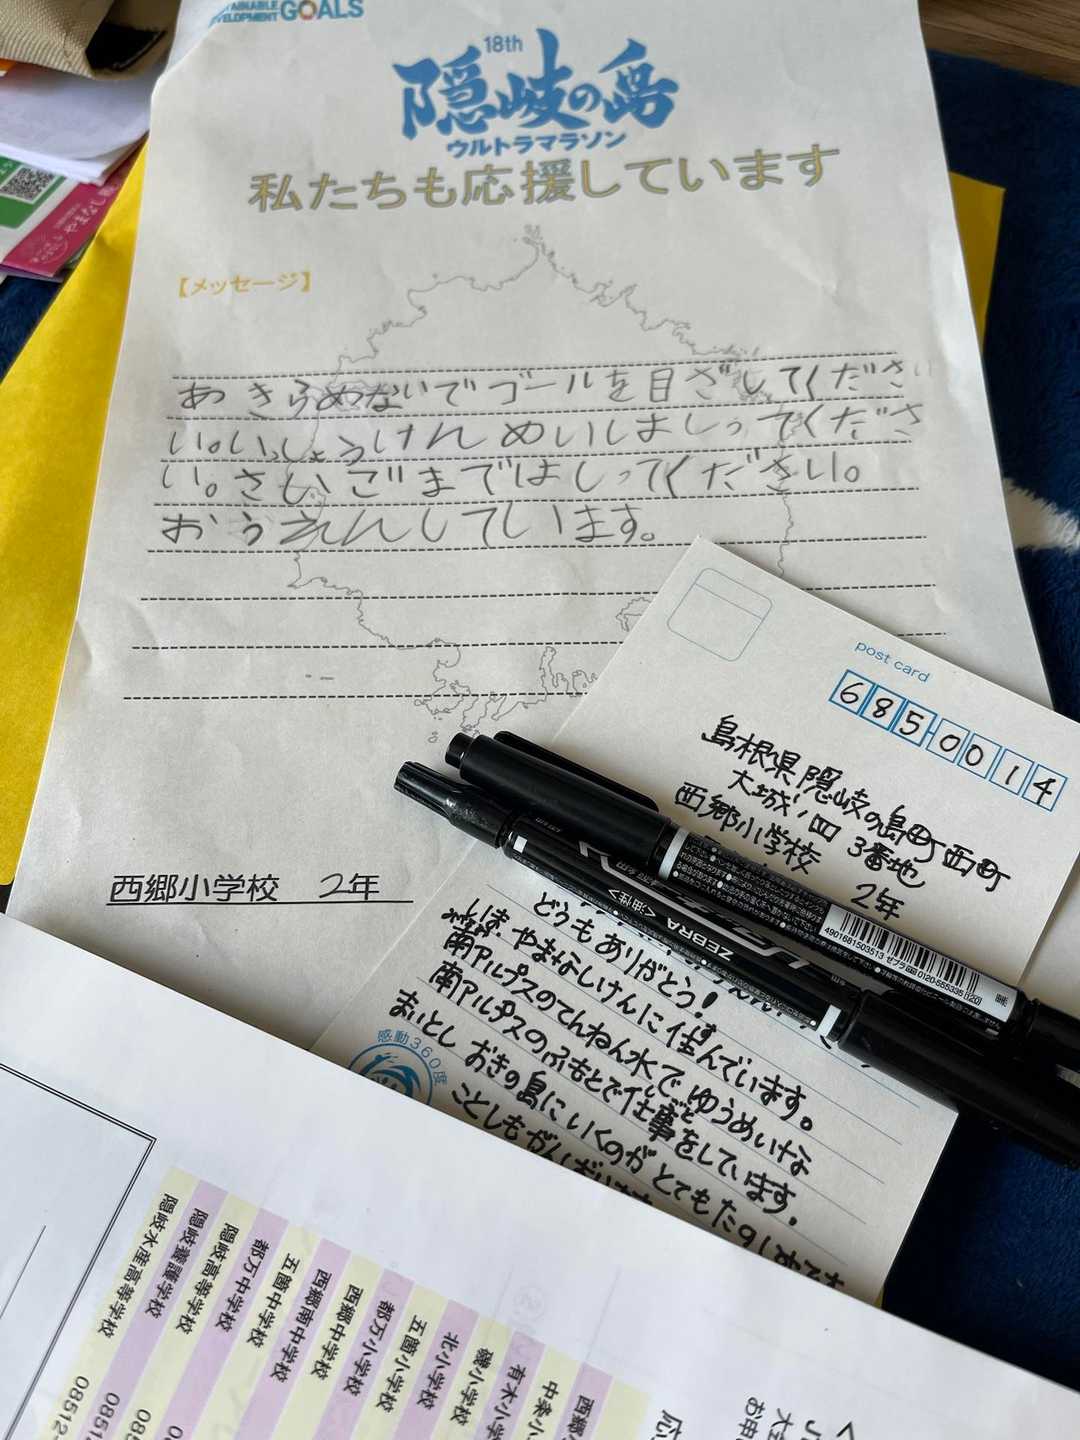 DEVELOPMENT GOALS
18th
隠岐の島
ウルトラマラソン
私たちも応援しています
【メッセージ】
あきらめないでゴールを目ざしてくださ
い。いっしょうけんめいはしってくださ
い。さいごまではしってください。
おうえんしています。
西郷小学校 2年
post card
685-0014
島根県隠岐の島町西町
3番地
西郷小学校
2年
どうもありがとう!
いま やまなしけんに住んでいます。
南アルプスのてんねん水で ゆうめいな
南アルプスのふもとで仕事をしています。
まいとし おきの島にいくのが とてもたのしみです
ことしもがんばります
感動360度
ZEBRA
<油性>
4901681503513
ゼブラ
0120-555335
西郷
中条小
有木小学
磯小学校
北小学校
五箇小学校
都万小学校
西郷中学校
西郷南中学校
五箇中学校
都万中学校
隠岐高等学校
隠岐養護学校
隠岐水産高等学校
08512